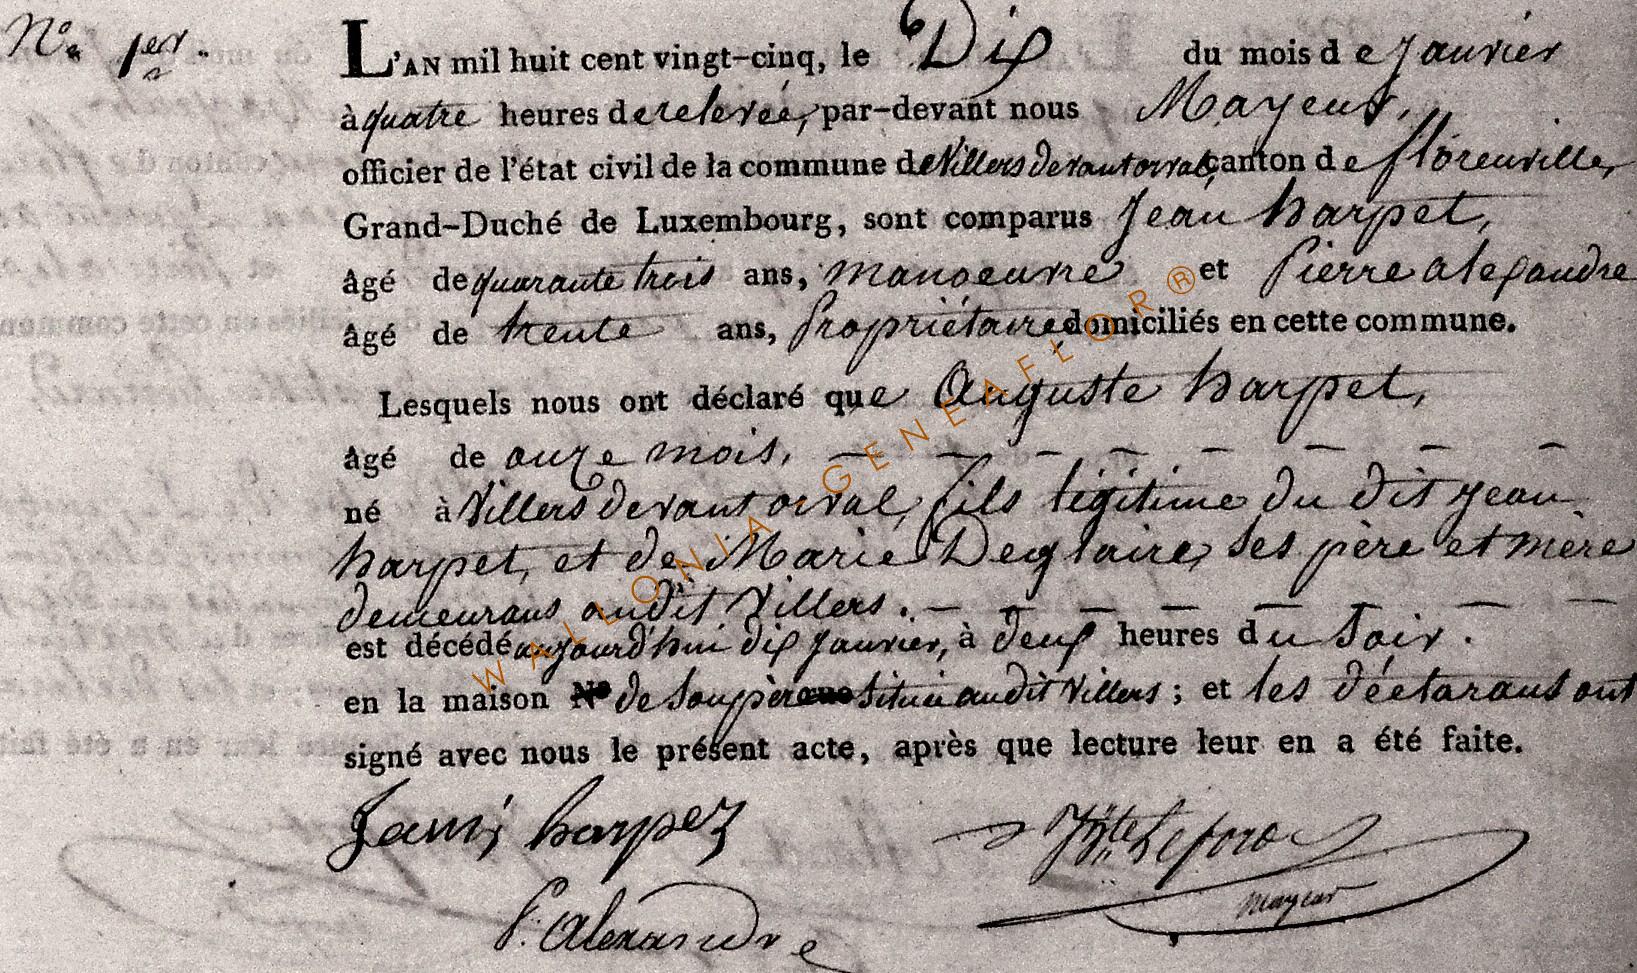 N.° 1er.
L'AN mil huit cent vingt-cinq, le Dix du mois de Janvier
à quatre heures de relevée, par-devant nous Mayeur,
officier de l'état civil de la commune de Villers devant orval, canton de florenville,
Grand-Duché de Luxembourg, sont comparus Jean harpet,
âgé de quarante trois ans, manoeuvre et Pierre alexandre
âgé de trente ans, Propriétaire, domiciliés en cette commune.
Lesquels nous ont déclaré que Auguste harpet,
âgé de onze mois,
né à Villers devant orval, fils légitime du dit Jean
harpet, et de Marie Deglaire, ses père et mère
demeurans audit Villers.
est décédé aujourd'hui dix Janvier, à deux heures du soir.
en la maison N° de son père situé audit Villers ; et les déclarans ont
signé avec nous le présent acte, après que lecture leur en a été faite.
harpez
P. Alexandre
mayeur
WALLONIA-GENEAFLOR®